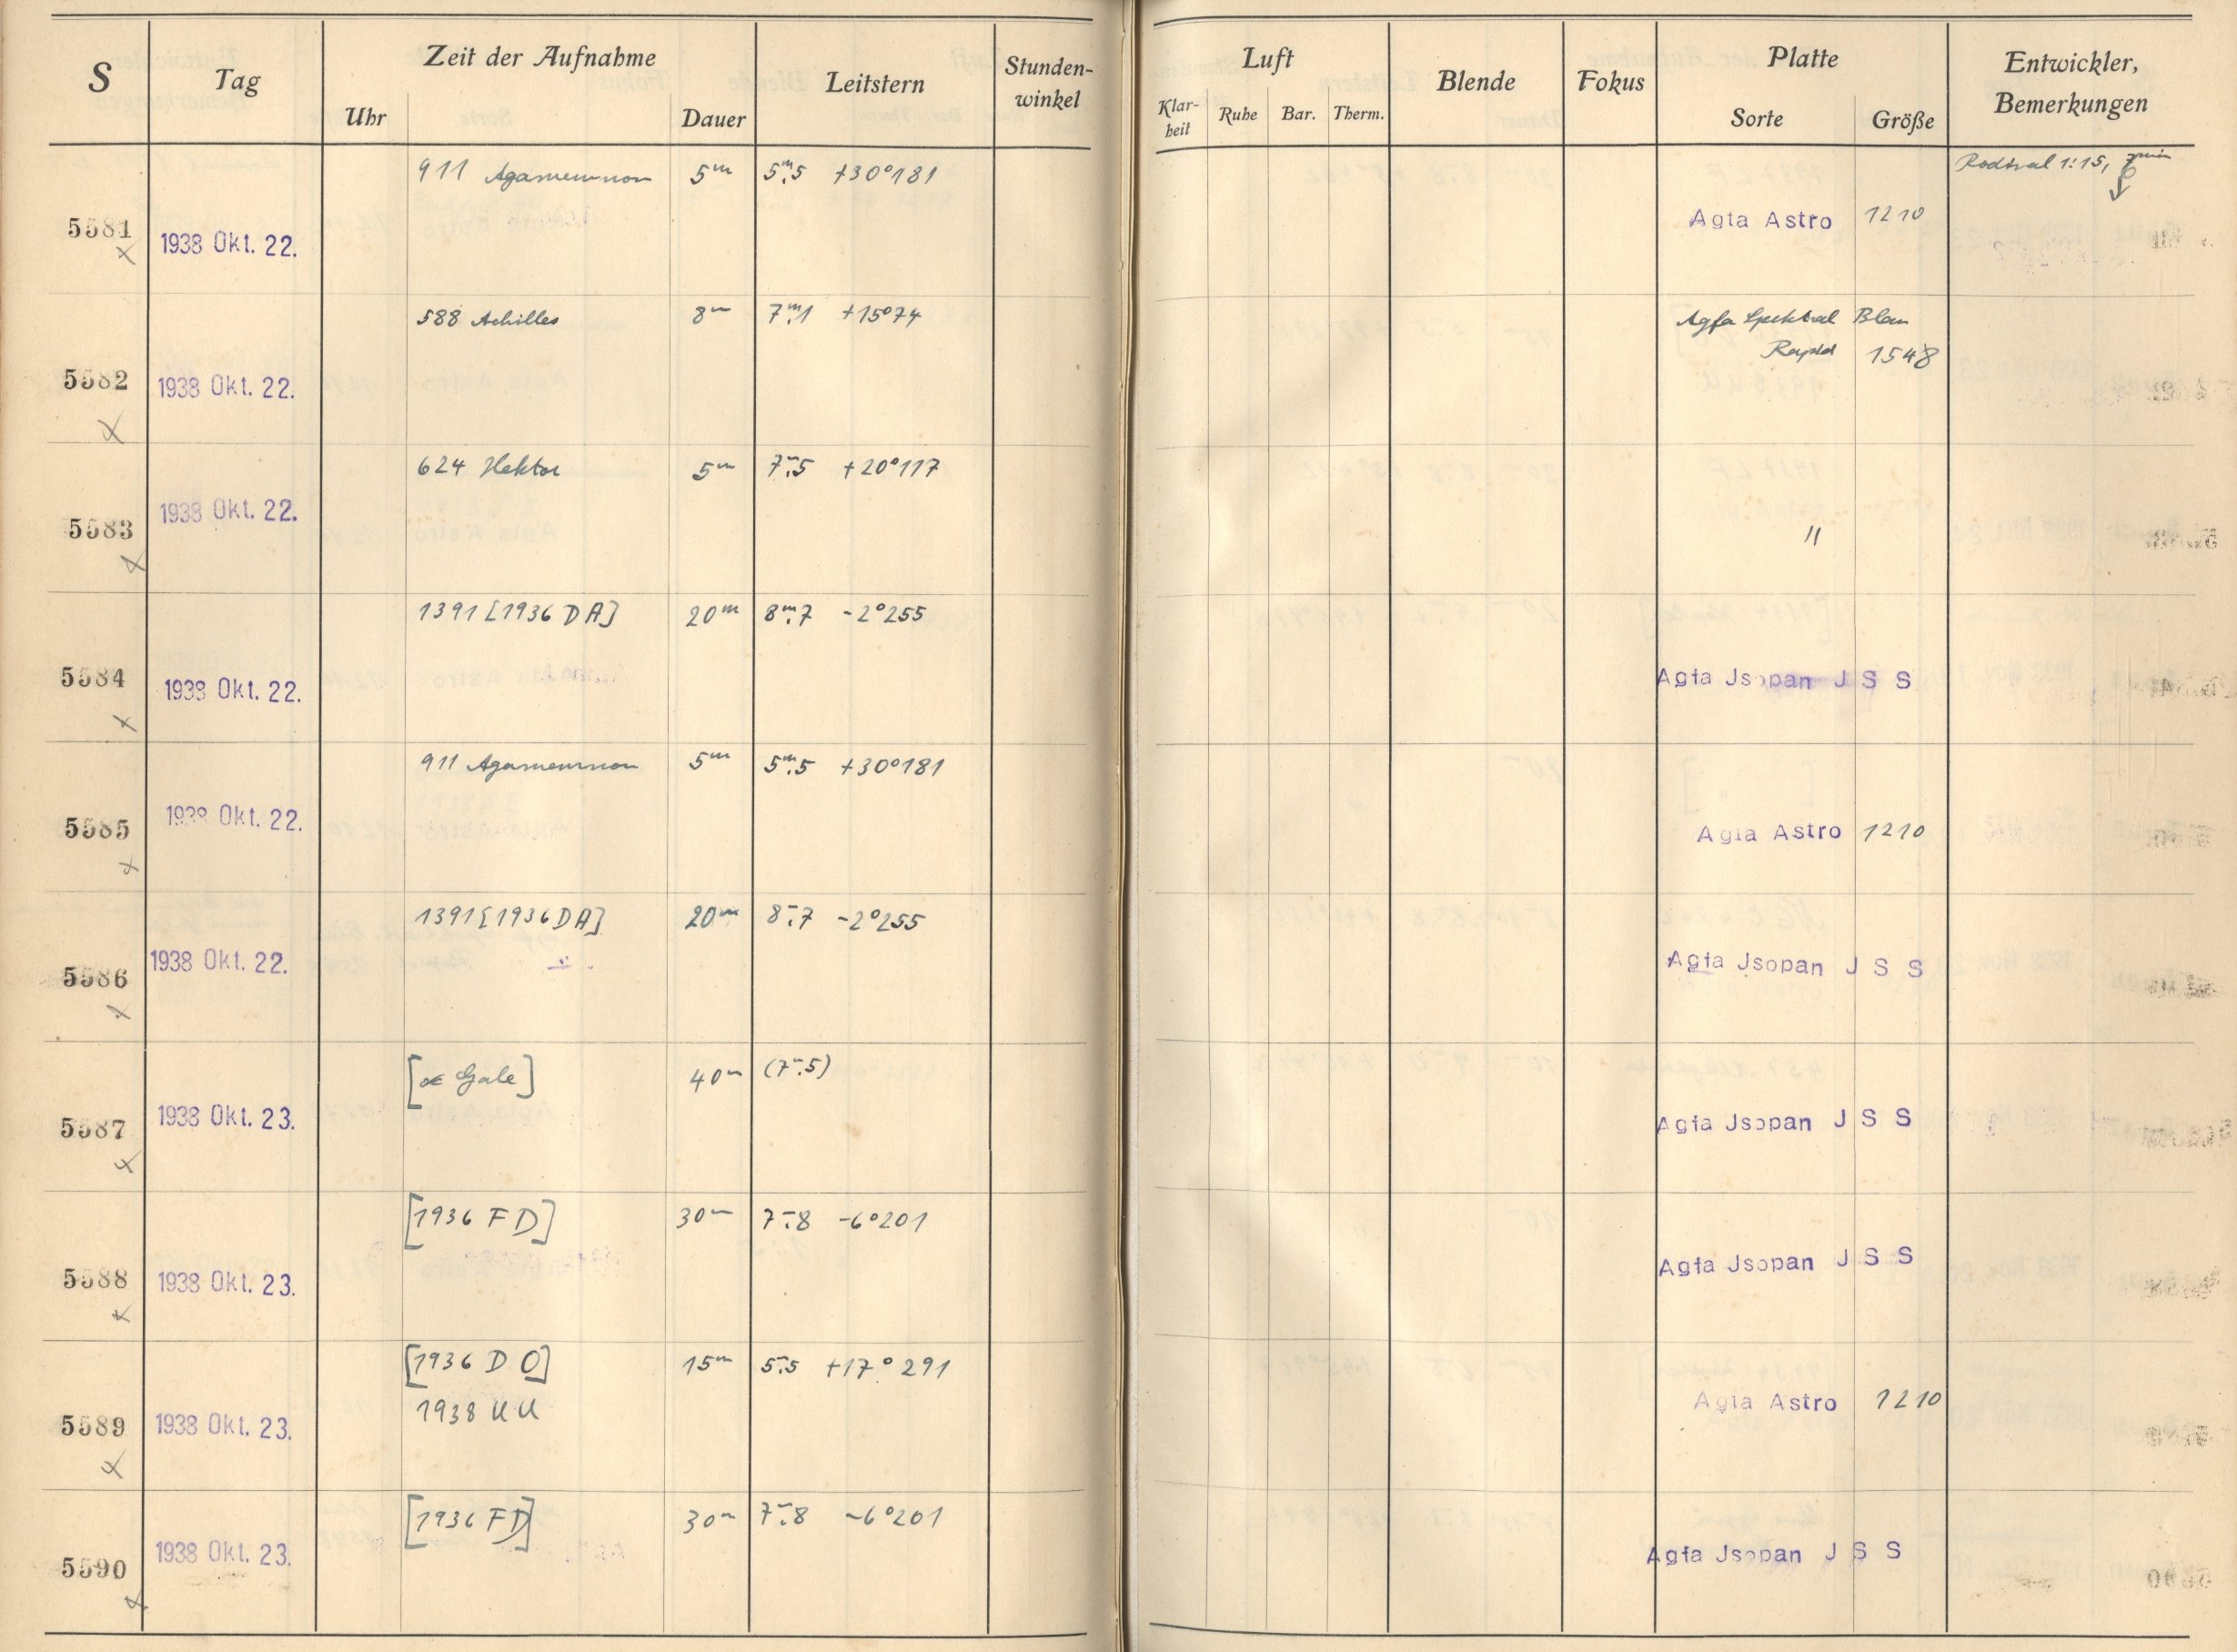 S Tag Zeit der Aufnahme Leitstern Stunden-winkel Luft Blende Fokus Platte Entwickler, Bemerkungen
Uhr Dauer Klar-heit Ruhe Bar. Therm. Sorte Größe
911 Agamemnon 5m 5m.5 +30°181 Rodinal 1:15,
5581 1938 Okt. 22. Agfa Astro 1210
588 Achilles 8m 7m.1 +15°74 Agfa Spektral Blau
5582 1938 Okt. 22. Rapid 1548
624 Hektor 5m 7m.5 +20°117
5583 1938 Okt. 22. "
1391 [1936 DA] 20m 8m.7 -2°255
5584 1938 Okt. 22. Agfa Jsopan J S S
911 Agamemnon 5m 5m.5 +30°181
5585 1938 Okt. 22. Agfa Astro 1210
1391 [1936 DA] 20m 8m.7 -2°255
5586 1938 Okt. 22. Agfa Jsopan J S S
[Gale] 40m (7m.5)
5587 1938 Okt. 23. Agfa Jsopan J S S
[1936 FD] 30m 7m.8 -6°201
5588 1938 Okt. 23. Agfa Jsopan J S S
[1936 DO] 15m 5m.5 +17°291
1938 UU
5589 1938 Okt. 23. Agfa Astro 1210
[1936 FD] 30m 7m.8 -6°201
5590 1938 Okt. 23. Agfa Jsopan J S S